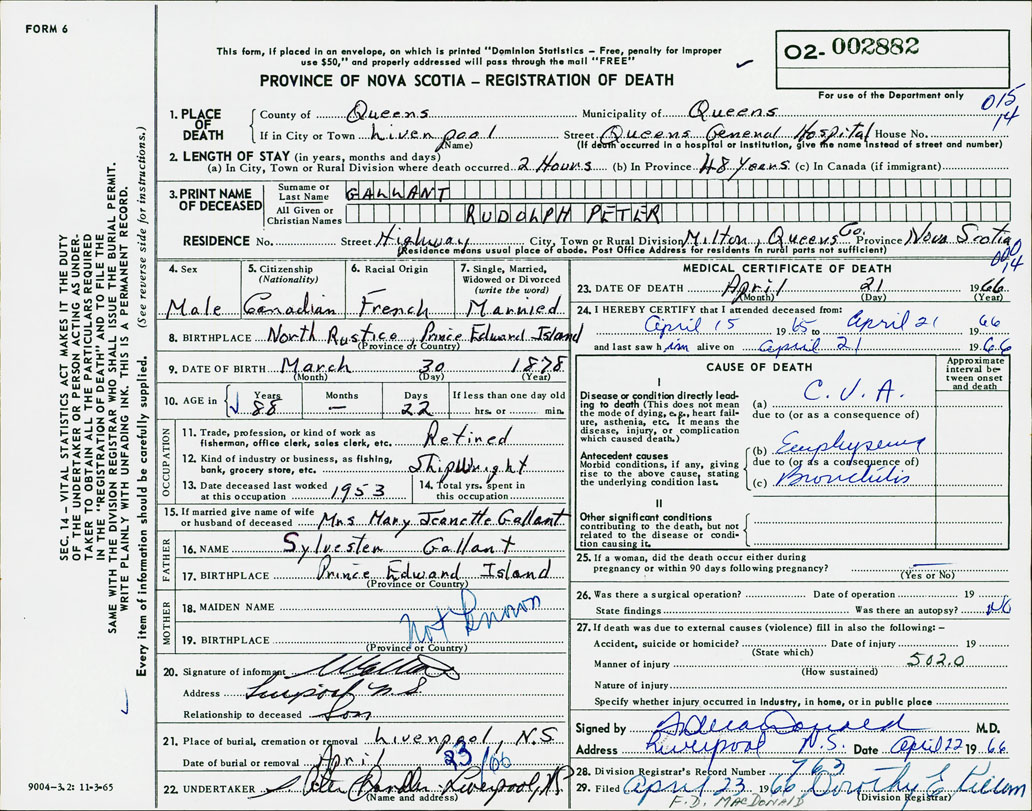 FORM 6
This form, if placed in an envelope, on which is printed "Dominion Statistics – Free, penalty for improper
use $50," and properly addressed will pass through the mail "FREE"
PROVINCE OF NOVA SCOTIA – REGISTRATION OF DEATH
O2- 002882
For use of the Department only
015
14
1. PLACE OF DEATH
County of Queens Municipality of Queens
If in City or Town Liverpool Street Queens General Hospital House No.
(Name) (If death occurred in a hospital or institution, give the name instead of street and number)
2. LENGTH OF STAY (in years, months and days)
(a) In City, Town or Rural Division where death occurred 2 Hours (b) In Province 48 Years (c) In Canada (if immigrant)
3. PRINT NAME OF DECEASED
Surname or Last Name GALLANT
All Given or Christian Names RUDOLPH PETER
RESIDENCE No. Street Highway City, Town or Rural Division Milton, Queens Co. Province Nova Scotia
(Residence means usual place of abode. Post Office Address for residents in rural parts not sufficient)
000
14
4. Sex
Male
5. Citizenship (Nationality)
Canadian
6. Racial Origin
French
7. Single, Married, Widowed or Divorced (write the word)
Married
8. BIRTHPLACE North Rustico, Prince Edward Island
(Province or Country)
9. DATE OF BIRTH March 30 1878
(Month) (Day) (Year)
10. AGE in Years 88 Months — Days 22 If less than one day old
hrs. or min.
OCCUPATION
11. Trade, profession, or kind of work as fisherman, office clerk, sales clerk, etc. Retired
12. Kind of industry or business, as fishing, bank, grocery store, etc. Shipwright
13. Date deceased last worked at this occupation 1953
14. Total yrs. spent in this occupation
15. If married give name of wife or husband of deceased Mrs Mary Jeanette Gallant
FATHER
16. NAME Sylvester Gallant
17. BIRTHPLACE Prince Edward Island
(Province or Country)
MOTHER
18. MAIDEN NAME
not known
19. BIRTHPLACE
(Province or Country)
20. Signature of informant
Address Liverpool N.S.
Relationship to deceased Son
21. Place of burial, cremation or removal Liverpool, N.S.
Date of burial or removal April 23/66
22. UNDERTAKER Liverpool, N.S.
(Name and address)
MEDICAL CERTIFICATE OF DEATH
23. DATE OF DEATH April 21 1966
(Month) (Day) (Year)
24. I HEREBY CERTIFY that I attended deceased from:
April 15 1965 to April 21 1966
and last saw him alive on April 21 1966
CAUSE OF DEATH
Approximate interval between onset and death
I
Disease or condition directly leading to death (This does not mean the mode of dying, e.g., heart failure, asthenia, etc. It means the disease, injury, or complication which caused death.)
(a) C.V.A.
due to (or as a consequence of)
Antecedent causes
Morbid conditions, if any, giving rise to the above cause, stating the underlying condition last.
(b) Emphysema
due to (or as a consequence of)
(c) Bronchitis
II
Other significant conditions
contributing to the death, but not related to the disease or condition causing it.
25. If a woman, did the death occur either during
pregnancy or within 90 days following pregnancy? —
(Yes or No)
26. Was there a surgical operation? Date of operation 19
State findings Was there an autopsy? No
27. If death was due to external causes (violence) fill in also the following: –
Accident, suicide or homicide? Date of injury 19
(State which)
Manner of injury 502.0
(How sustained)
Nature of injury
Specify whether injury occurred in industry, in home, or in public place
Signed by M.D.
Address Liverpool N.S. Date April 22 1966
28. Division Registrar's Record Number 763
29. Filed April 23 1966 Dorothy E Killam
F.D. MACDONALD (Division Registrar)
SEC. 14 – VITAL STATISTICS ACT MAKES IT THE DUTY
OF THE UNDERTAKER OR PERSON ACTING AS UNDER-
TAKER TO OBTAIN ALL THE PARTICULARS REQUIRED
IN THE "REGISTRATION OF DEATH" AND TO FILE THE
SAME WITH THE DIVISION REGISTRAR WHO SHALL ISSUE THE BURIAL PERMIT.
WRITE PLAINLY WITH UNFADING INK. THIS IS A PERMANENT RECORD.
Every item of information should be carefully supplied. (See reverse side for instructions.)
9004–3.2: 11-3-65